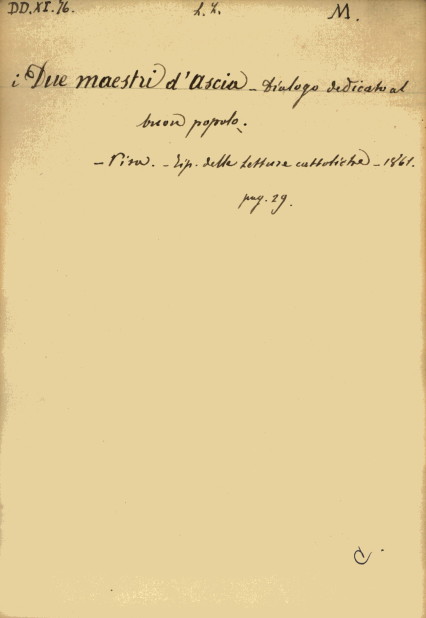 DD.XI.76. L.L. M.
i Due maestri d'Ascia - Dialogo dedicato al
buon popolo.
- Pisa. - Tip. delle Letture cattoliche - 1861.
pag. 29.